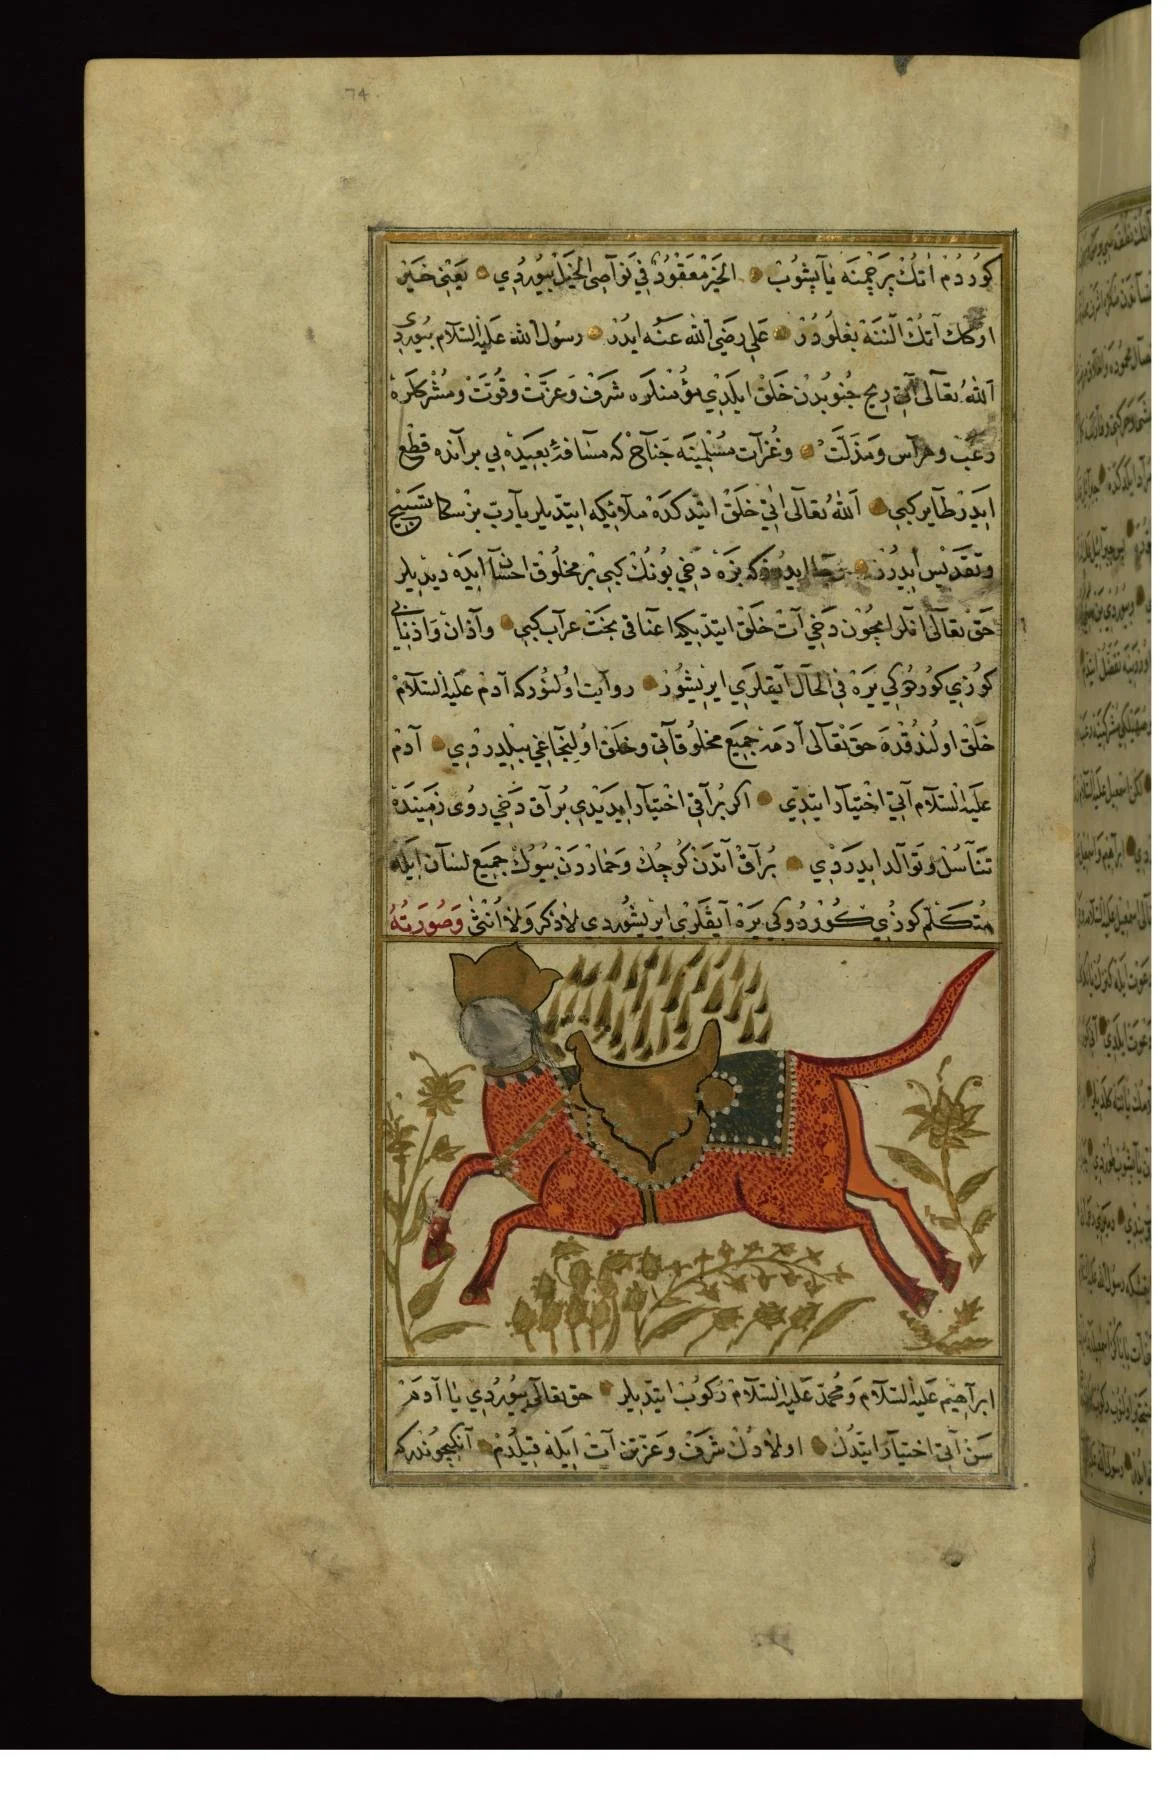 74
كوردم اتك پرچمنه يآپشوب الخير معقود في نوآصى الخيل بيوردي يعني خير
اركك آتك آلننه بغلودر علي رضي الله عنه ايدر رسول الله عليه السلام بيوردي
الله تعآلى آتي ريح جنوبدن خلق ايلدي مؤمنلره شرف وعزت وقوت ومشركلره
رعب وهرآس ومذلت وغزآت مسلمينه جنآح كه مسآفۀ بعيدۀ بي برآنده قطع
ايدر طآير كبي الله تعآلى اتي خلق اتدكده ملآئيكه ايتديلر يآ رب بز سكا تسبيح
وتقديس ايدرز رجا ايدرز كه بزه دخي بونك كبي بر مخلوق احشآ ايده ديديلر
حق تعآلى انلرايچون دخي آت خلق ايتديكه اعناقي بخت عرآب كبي وآذان وآذنابي
كوزي كوردوكي يره في الحآل آيقلري ايريشور روآيت اولنور كه آدم عليه السلآم
خلق اولندقده حق تعآلى آدمه جميع مخلوقآتي وخلق اولنجآغي بيلدردي آدم
عليه السلآم آتي اختيآر ايتدي اكر برآقي اختيآر ايديدي برآق دخي روى زمينده
تنآسل وتوآلد ايدردي برآق آتدن كوچك وحماردن بيوك جميع لسآن ايله
متكلم كوزي كوردوكي يره آيقلري ايريشوردي لا ذكر ولا انثى وصورته
ابرآهيم عليه السلآم ومحمد عليه السلآم ركوب ايتديلر حق تعآلى بيوردي يا آدم
سن آتي اختيآر ايتدك اولادك شرف وعزتن آت ايله قيلدم آنكچوندركه